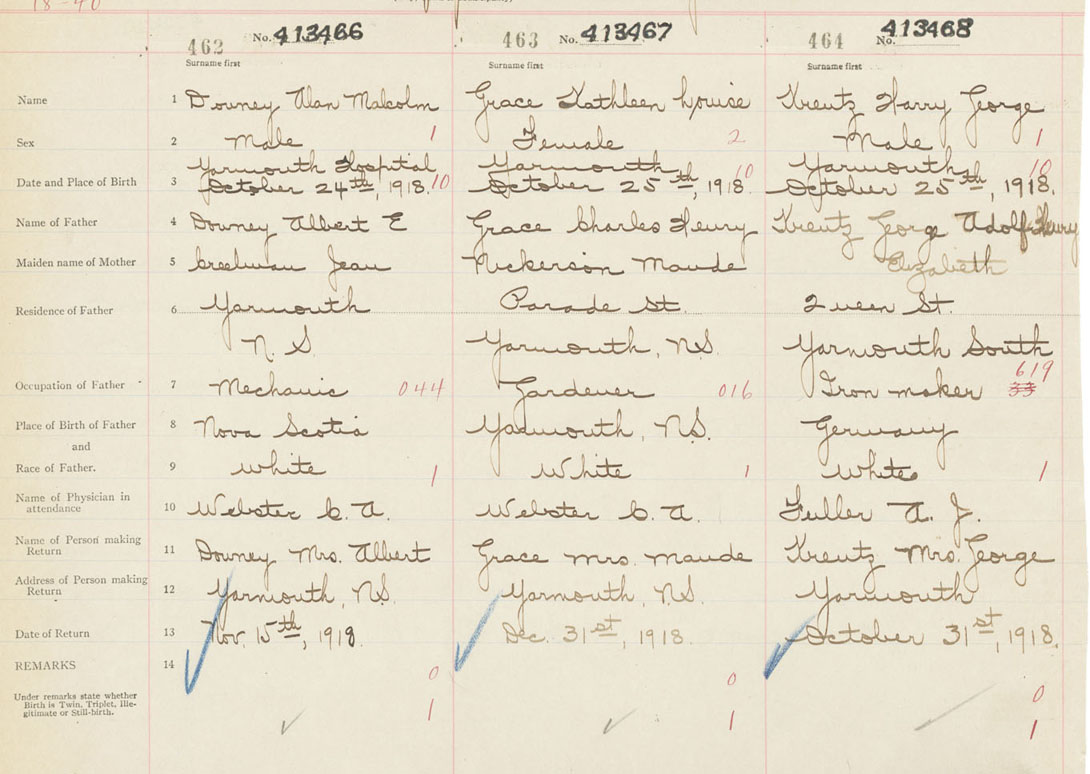 18-40
462 No. 413466 463 No. 413467 464 No. 413468
Surname first Surname first Surname first
Name 1 Downey Alan Malcolm Grace Kathleen Louise Kreutz Harry George
Sex 2 Male 1 Female 2 Male 1
Yarmouth Hospital Yarmouth, 10 Yarmouth, 10
Date and Place of Birth 3 October 24th, 1918. 10 October 25th, 1918. October 25th, 1918.
Name of Father 4 Downey Albert E Grace Charles Henry Kreutz George Adolf Henry
Maiden name of Mother 5 Creelman Jean Nickerson Maude Elizabeth
Residence of Father 6 Yarmouth Parade St. Queen St.
N. S. Yarmouth, N.S. Yarmouth South
619
Occupation of Father 7 Mechanic 044 Gardener 016 Iron maker 33
Place of Birth of Father 8 Nova Scotia Yarmouth, N.S. Germany
and
Race of Father. 9 White 1 White 1 White 1
Name of Physician in
attendance 10 Webster C. A. Webster C. A. Fuller A. J.
Name of Person making
Return 11 Downey Mrs. Albert Grace Mrs. Maude Kreutz Mrs. George
Address of Person making
Return 12 Yarmouth, N.S. Yarmouth, N.S. Yarmouth
Date of Return 13 Nov. 15th, 1918 Dec. 31st, 1918. October 31st, 1918.
REMARKS 14 0 0 0
Under remarks state whether
Birth is Twin, Triplet, Ille-
gitimate or Still-birth. 1 1 1